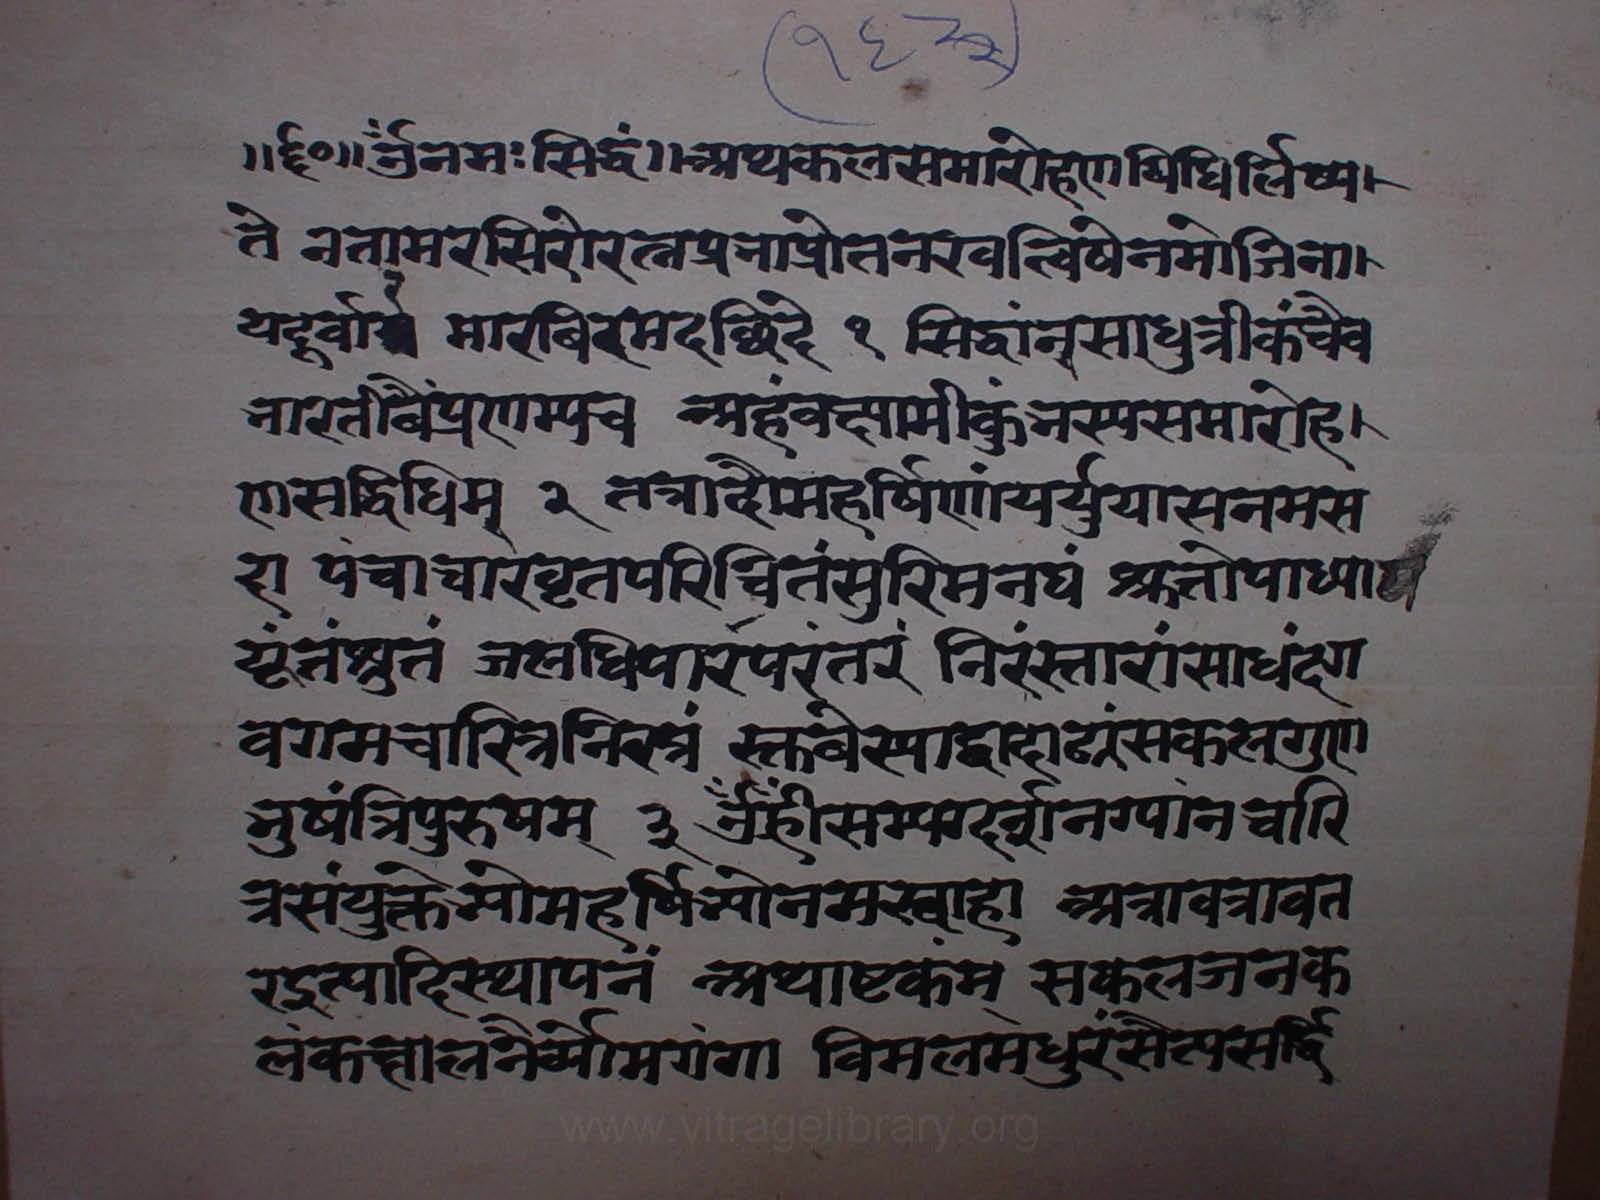 (१६२२)
॥६०॥ ॐ नमः सिद्धं ॥ अथकलसमारोहणविधिर्लिष्य
ते नतामरसिरोरत्नप्रभाप्रोतनखत्विंषेनमोजिना
यदूर्वार मारबिरमदछिदे १ सिद्धांन्साधुत्रीकंचैव
भारतीबैंप्रणम्यच अहंवक्ष्यामीकुंभस्यसमारोह
णसद्विधिम् २ तत्रादौमहर्षिणांपर्युपासनमस
रा पंचाचारवृतपरिचितंसुरिमनघं
श्रुतं जलधिपारंपरंतरं निरंस्तारांसाधं
वगमचारित्रनिरत्नं सकलगुण
भुषंत्रिपुरुषम् ३ ॐ ह्रींसम्यग्दर्शनग्यानचारि
त्रसंयुक्तेभ्योमहर्षिभ्योनमस्वाहा अत्रावत्रावत
रइत्यादिस्थापनं अथाष्टकंम् सकलजनक
लंकक्षालनैर्व्योमगंगा विमलमधुरंसैत्यसर्द्दि
www.vitragelibrary.org